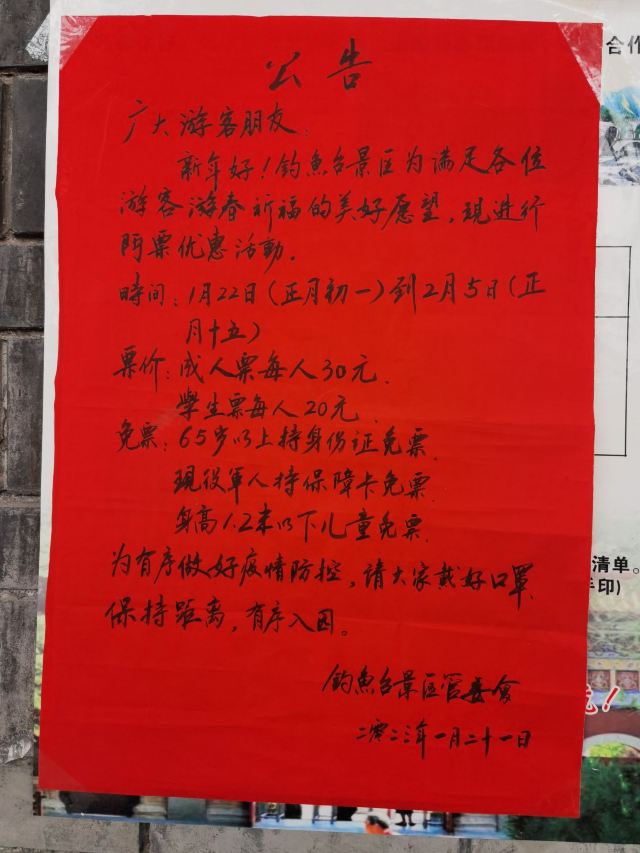 公告
广大游客朋友:
新年好!钓魚台景区为满足各位
游客游春祈福的美好愿望,現进行
门票优惠活動.
時间:1月22日(正月初一)到2月5日(正
月十五)
票价:成人票每人30元.
學生票每人20元.
免票:65岁以上持身份证免票.
現役軍人持保障卡免票.
身高1.2米以下儿童免票.
为有序做好疫情防控,请大家戴好口罩,
保持距离,有序入园。
钓魚台景区管委會
二零二三年一月二十一日
合作
清单。
手印)
!